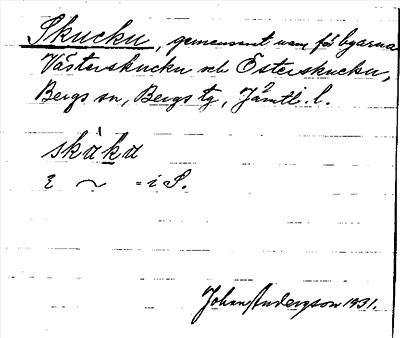 Skucku, gemensamt namn för byarna
Västerskucku och Österskucku,
Bergs sn, Bergs tg, Jämtl. l.
skàka
~ = i S.
Johan Anderson 1931.